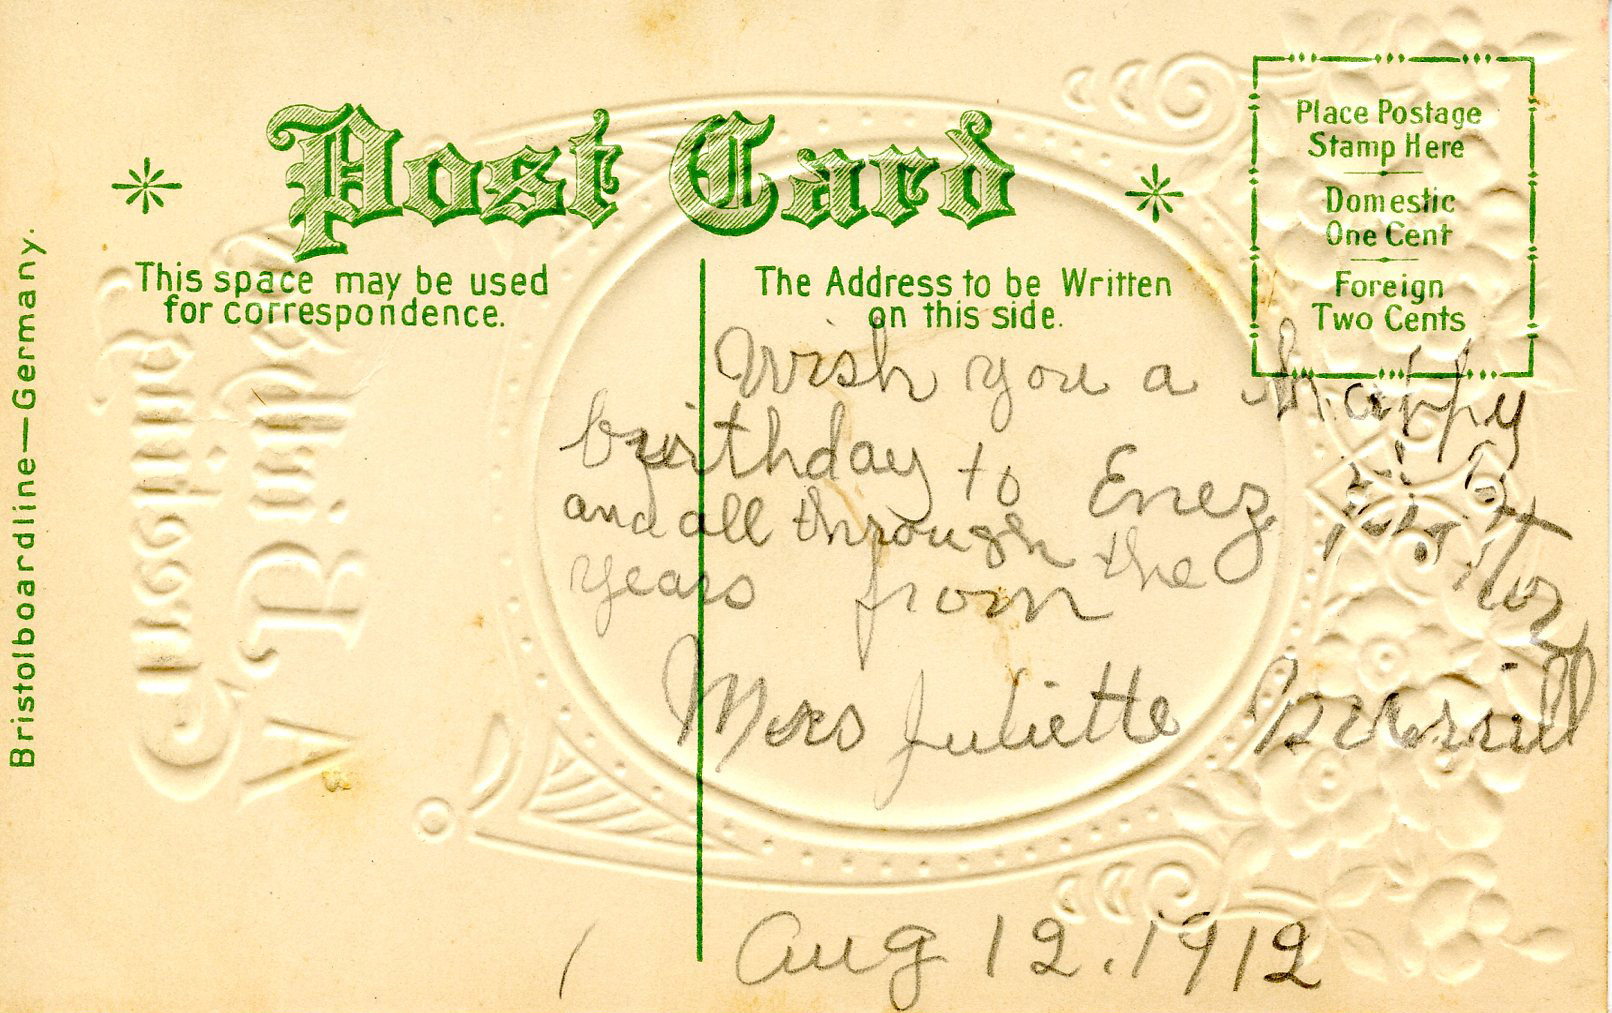 Post Card
This space may be used
for correspondence.
The Address to be Written
on this side.
Place Postage
Stamp Here
Domestic
One Cent
Foreign
Two Cents
Bristolboardline—Germany.
Wish you a happy
birthday to Enez
and all through the
years from
Mrs Juliette
Aug 12. 1912